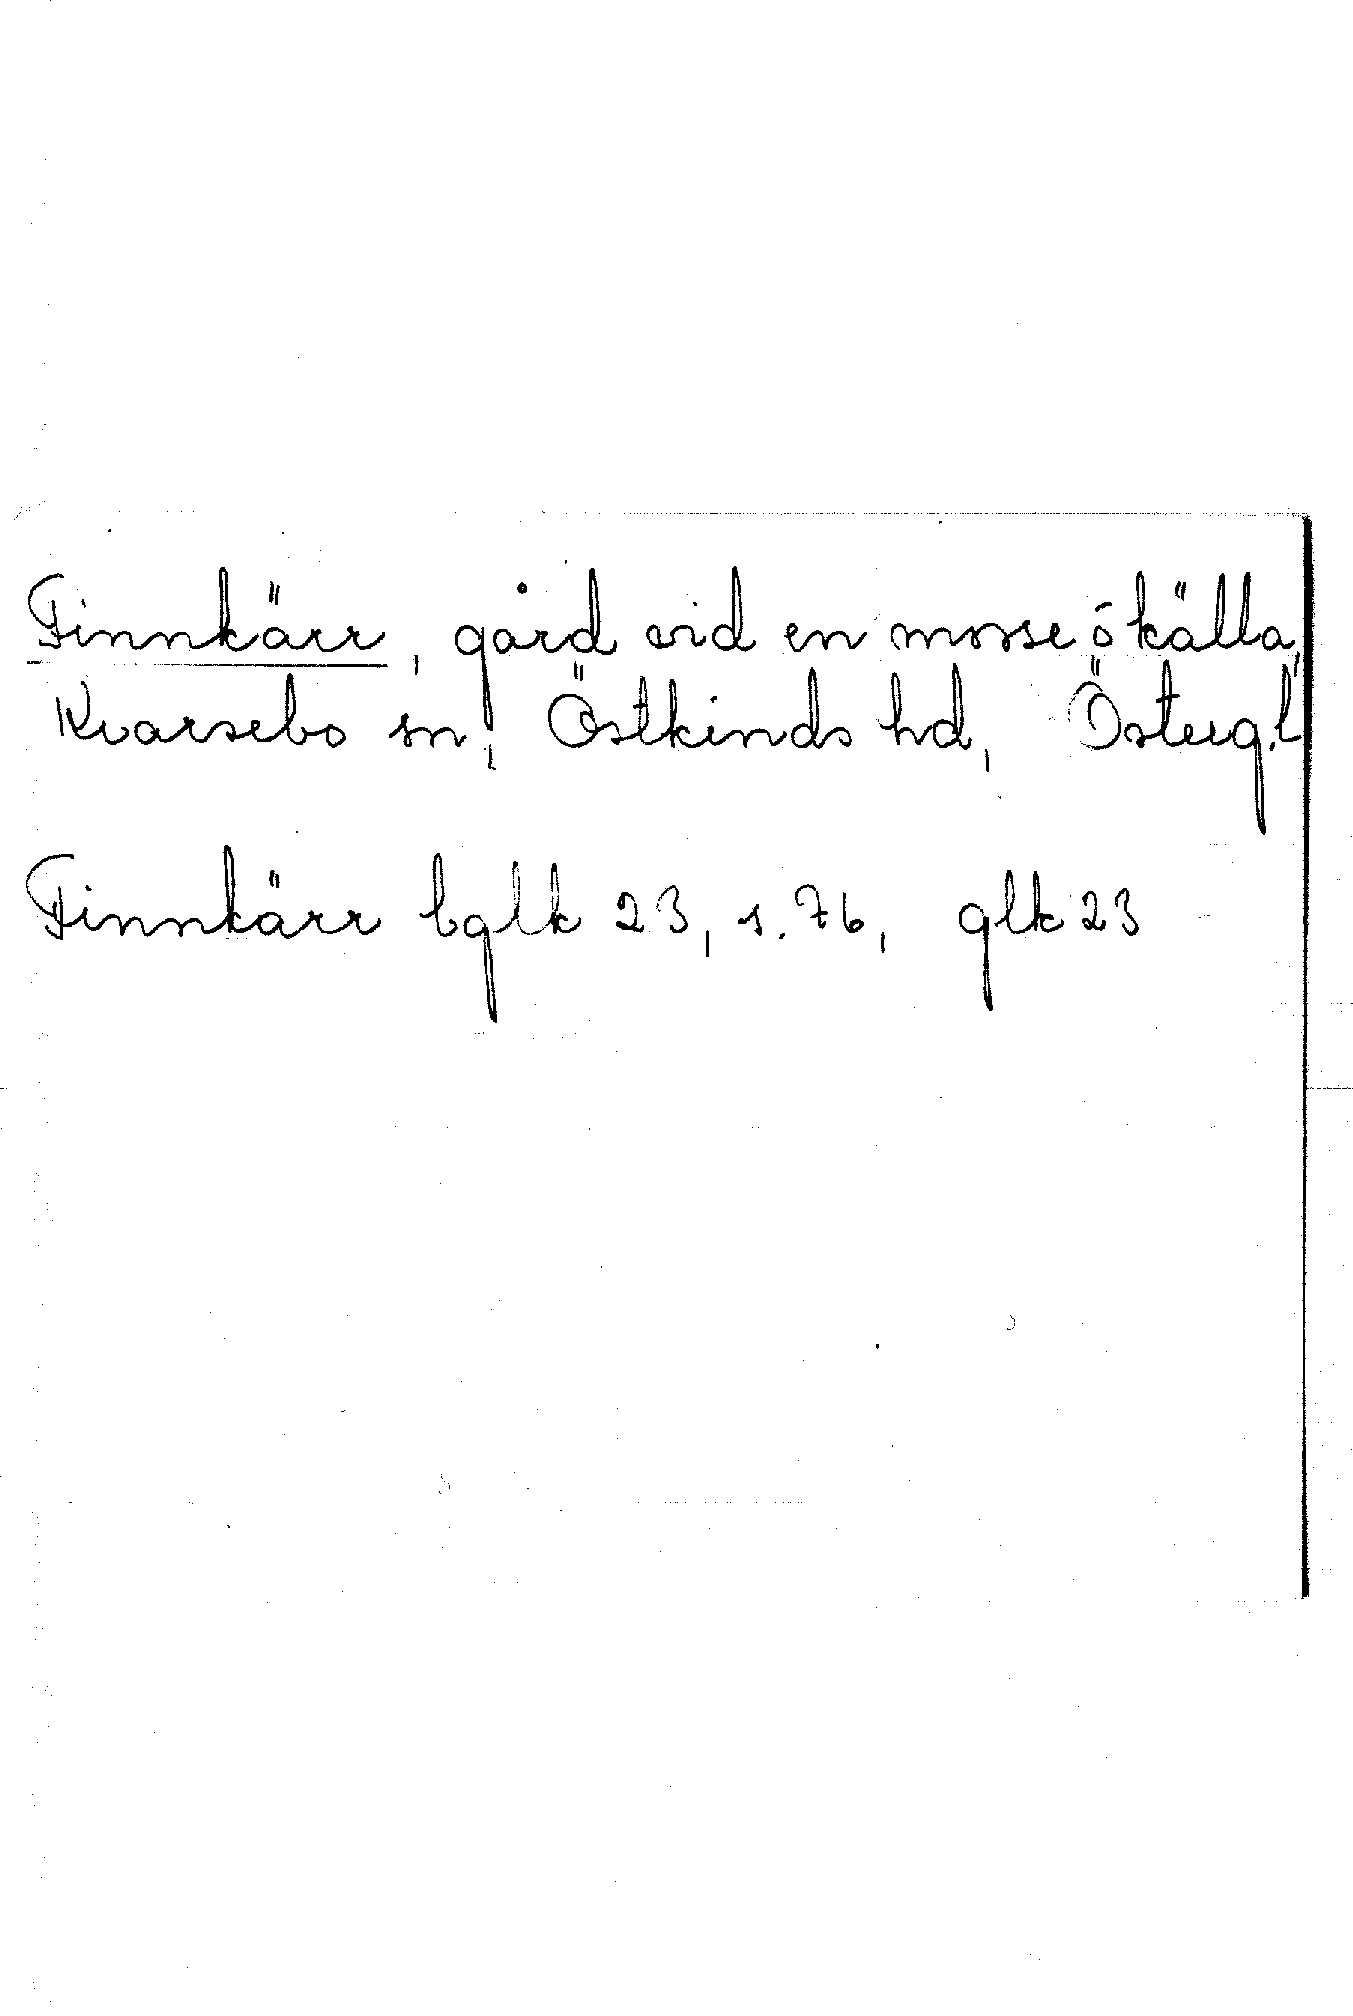 Finnkärr, gård vid en mosse o källa,
Kvarsebo sn, Östkinds hd, Österg.l
Finnkärr bglk 23, s. 76, glk 23